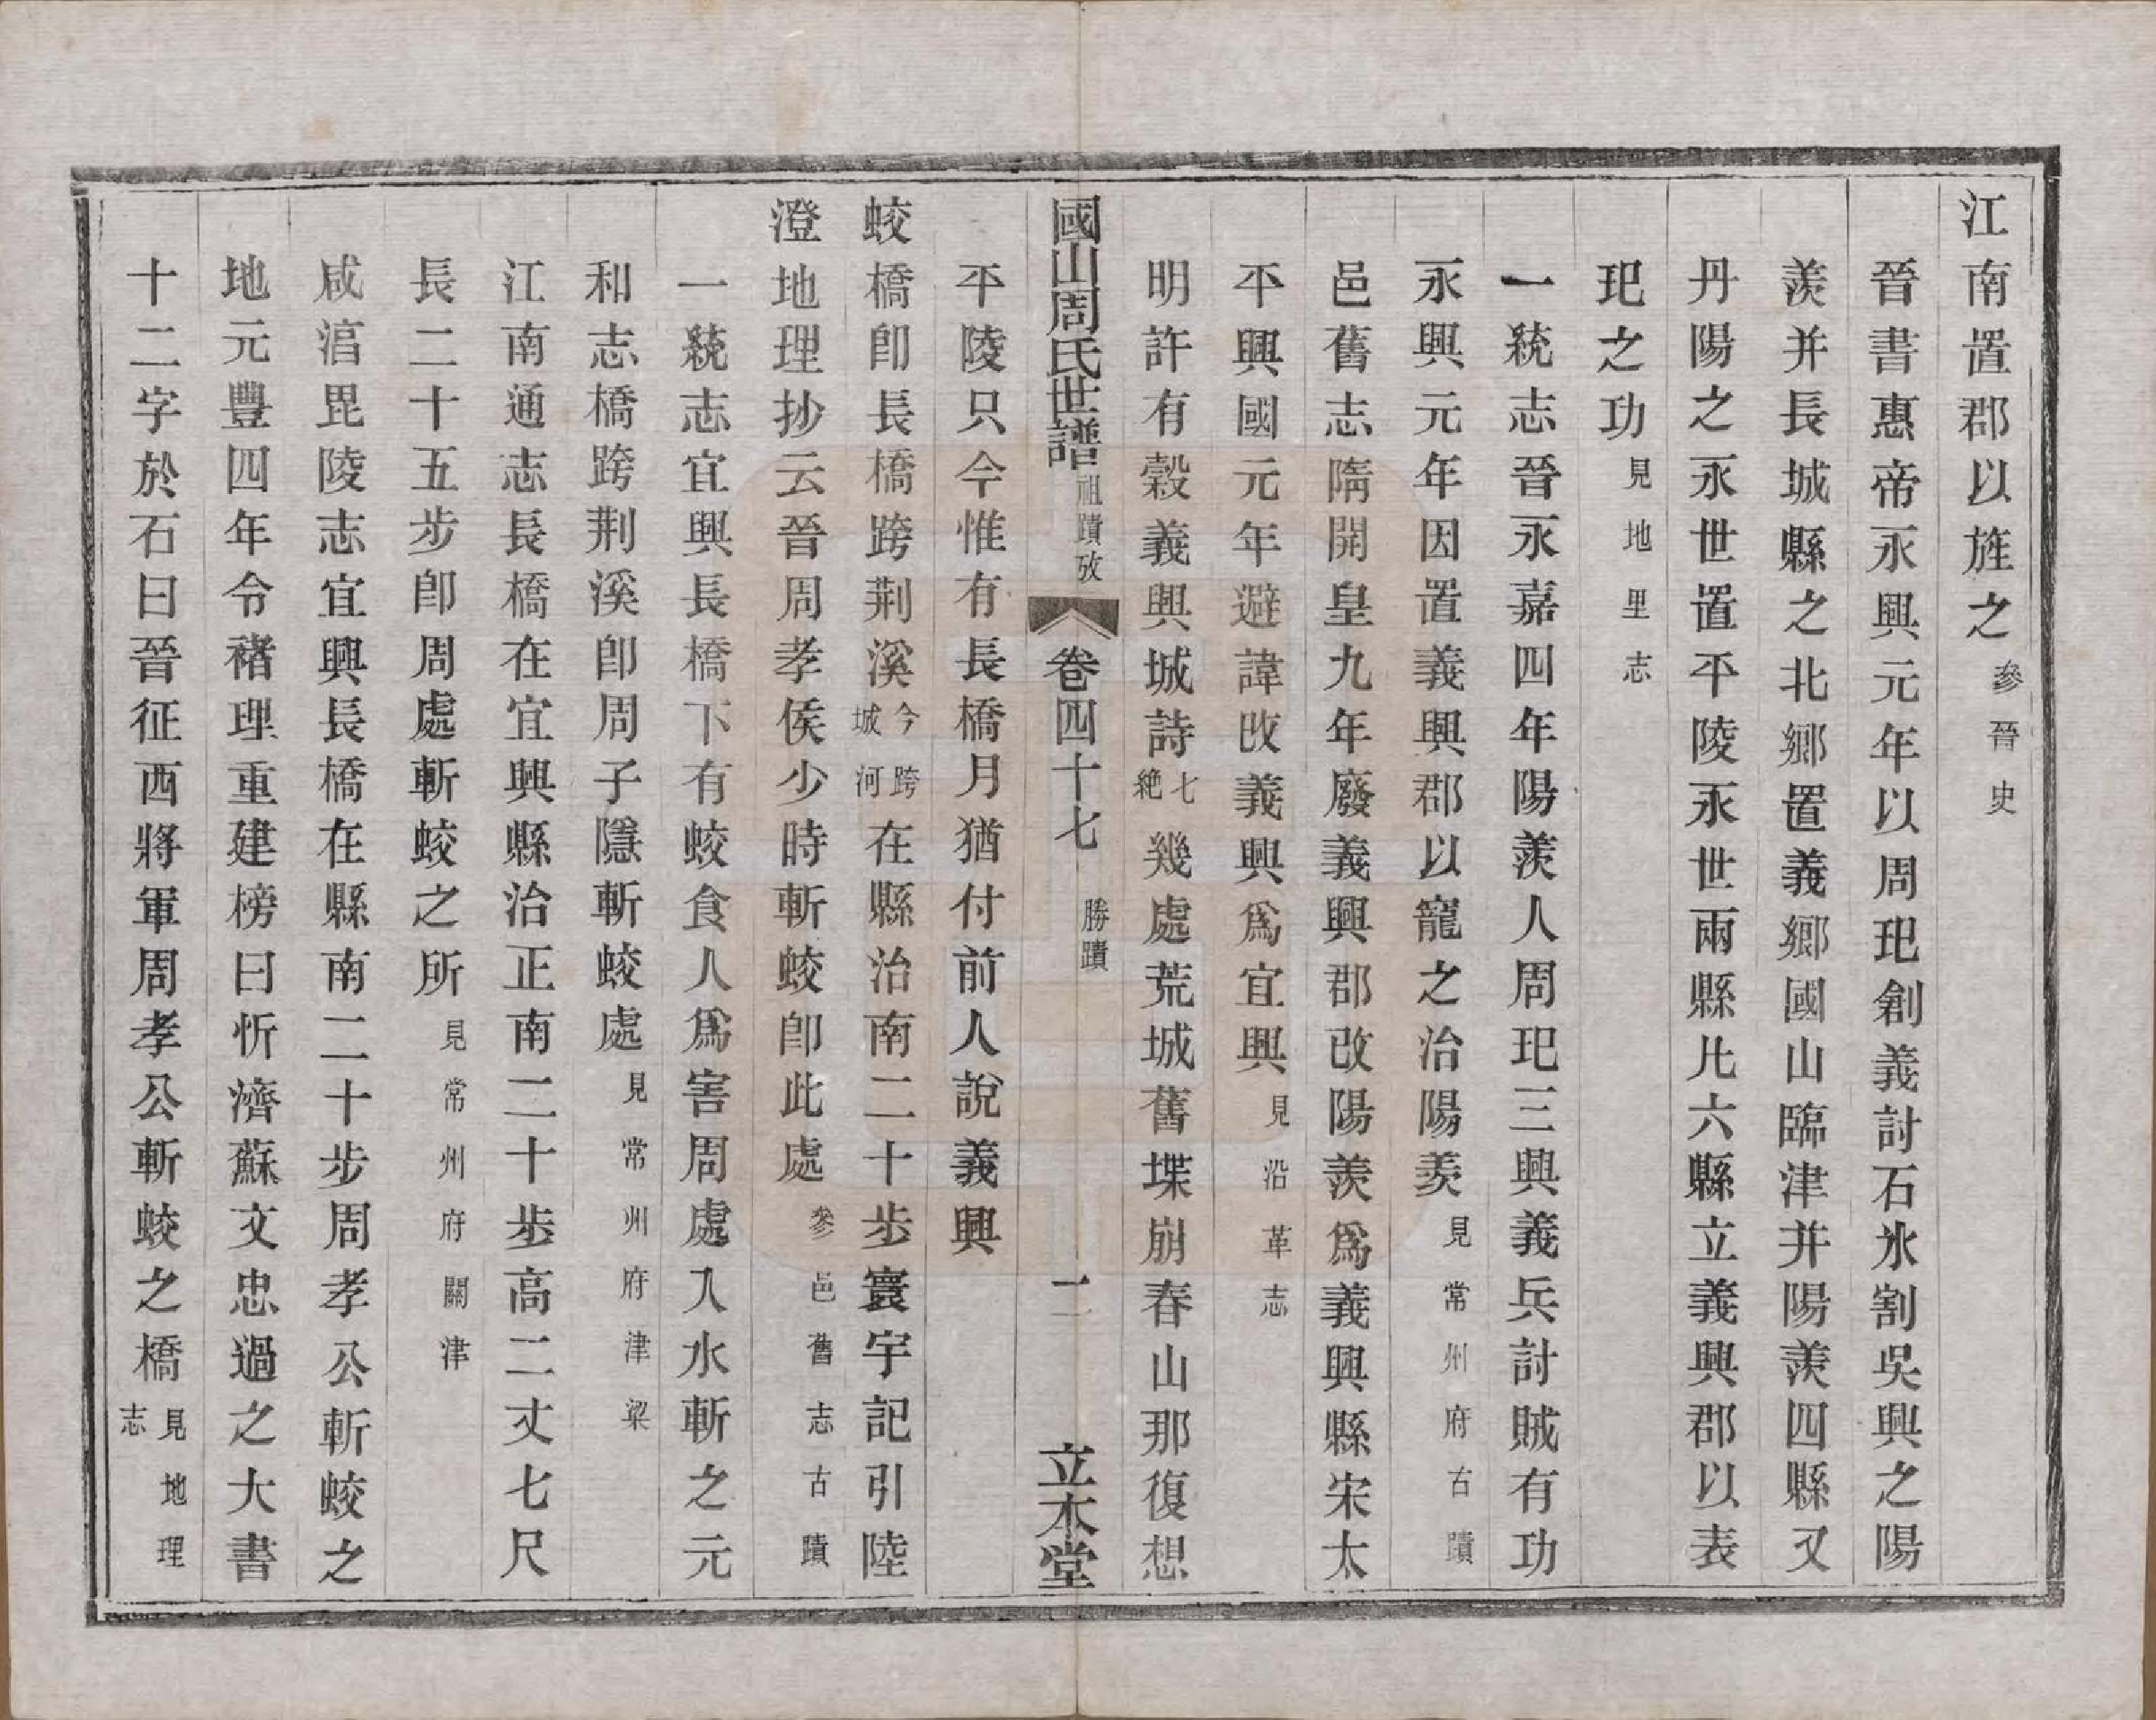 江南置郡以旌之參晉史
晉書惠帝永興元年以周玘創義討石氷割吳興之陽
羨并長城縣之北鄉置義鄉國山臨津并陽羨四縣又
丹陽之永世置平陵永世兩縣凡六縣立義興郡以表
玘之功見地里志
一統志晉永嘉四年陽羨人周玘三興義兵討賊有功
永興元年因置義興郡以寵之治陽羨見常州府古蹟
邑舊志隋開皇九年廢義興郡改陽羨爲義興縣宋太
平興國元年避諱改義興爲宜興見沿革志
明許有穀義興城詩七絶幾處荒城舊堞崩春山那復想
國山周氏世譜祖蹟攷 卷四十七 勝蹟 二 立本堂
平陵只今惟有長橋月猶付前人說義興
蛟橋卽長橋跨荆溪今跨城河在縣治南二十步寰宇記引陸
澄地理抄云晉周孝侯少時斬蛟卽此處參邑舊志古蹟
一統志宜興長橋下有蛟食人爲害周處入水斬之元
和志橋跨荆溪卽周子隱斬蛟處見常州府津梁
江南通志長橋在宜興縣治正南二十步高二丈七尺
長二十五步卽周處斬蛟之所見常州府關津
咸淳毘陵志宜興長橋在縣南二十步周孝公斬蛟之
地元豐四年令褚理重建榜曰忻濟蘇文忠過之大書
十二字於石曰晉征西將軍周孝公斬蛟之橋見地理志